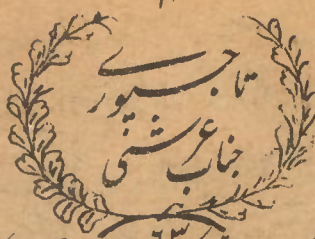 تاجپوری
جناب عرشی